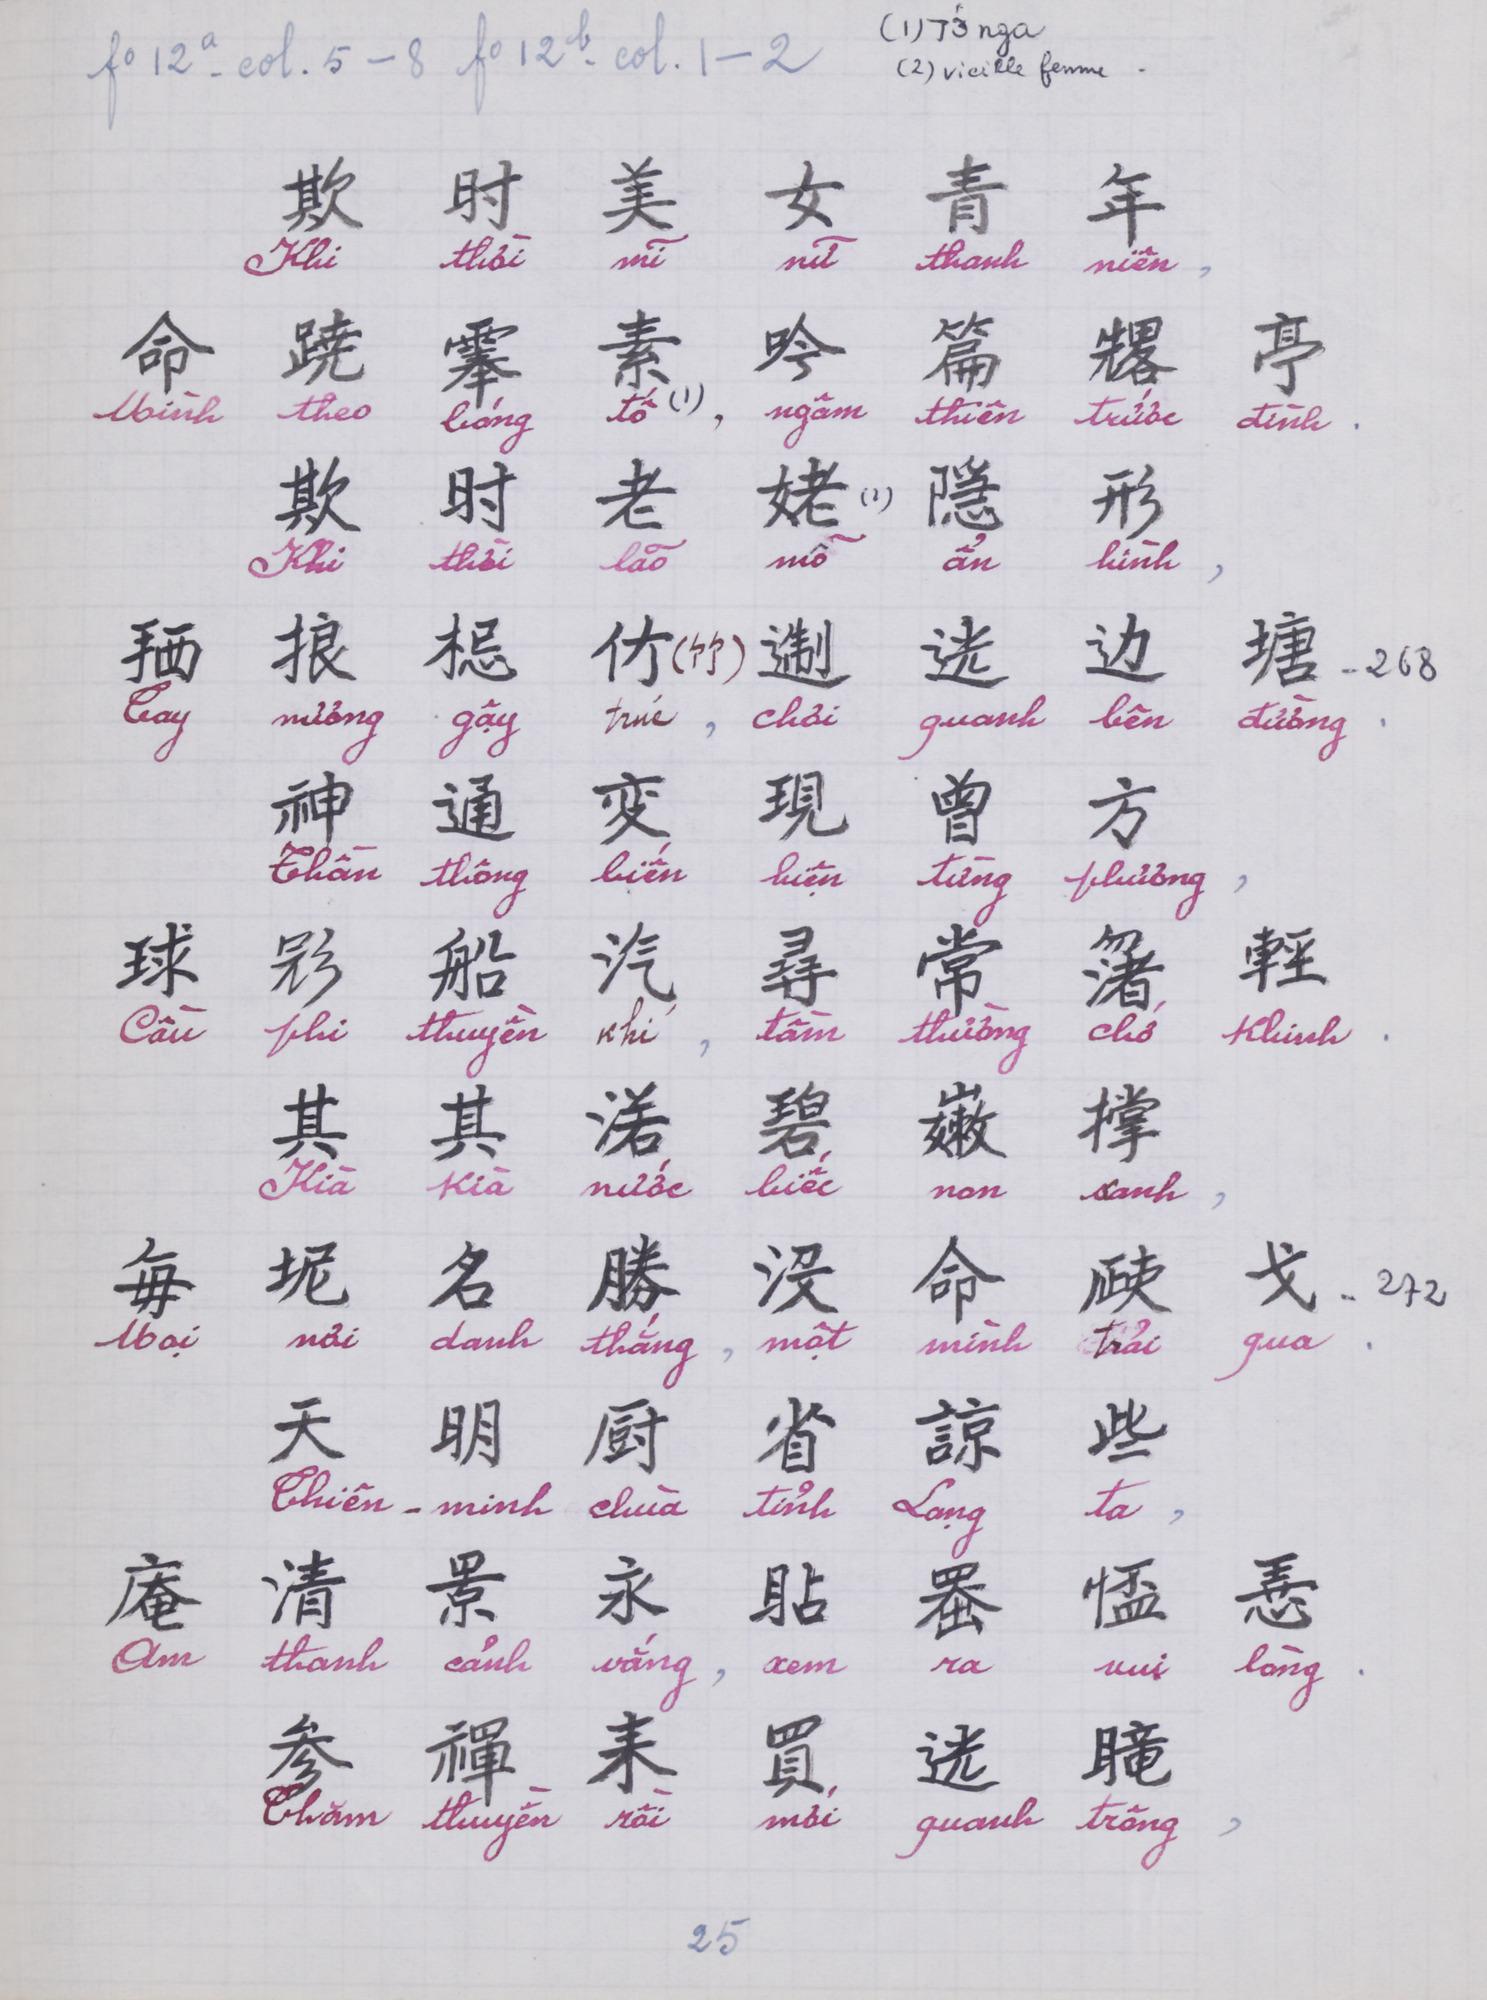 fº 12ª - col. 5 - 8 fº 12ᵇ - col. 1 - 2
(1) Tố nga
(2) vieille femme -
欺 时 美 女 青 年
Khi thời mĩ nữ thanh niên,
命 蹺 𩃳 素 吟 篇 𠓀 亭
Mình theo bóng tố (1), ngâm thiên trước đình.
欺 时 老 姥 (2) 隱 形
Khi thời lão mỗ ẩn hình,
拪 挸 𣖖 竹 (竹) 𨔈 𨒺 边 塘 - 268
Tay nương gậy trúc, chơi quanh bên đường.
神 通 变 現 曾 方
Thần thông biến hiện từng phương,
球 船 汽 尋 常 輕
Cầu phi thuyền khí, tầm thường chớ khinh.
其 其 渃 碧 嫩 撑
Kià kià nước biếc non xanh,
每 坭 名 勝 没 命 戈 - 272
Mọi nơi danh thắng, một mình trải qua.
天 明 厨 省 諒 些
Thiên - minh chùa tỉnh Lạng ta,
庵 清 景 永 貼 𠚢 𢝙 𢚸
Am thanh cảnh vắng, xem ra vui lòng.
参 禪 耒 買 𨒺 𥊣
Thăm thuyền rồi mới quanh trông,
25